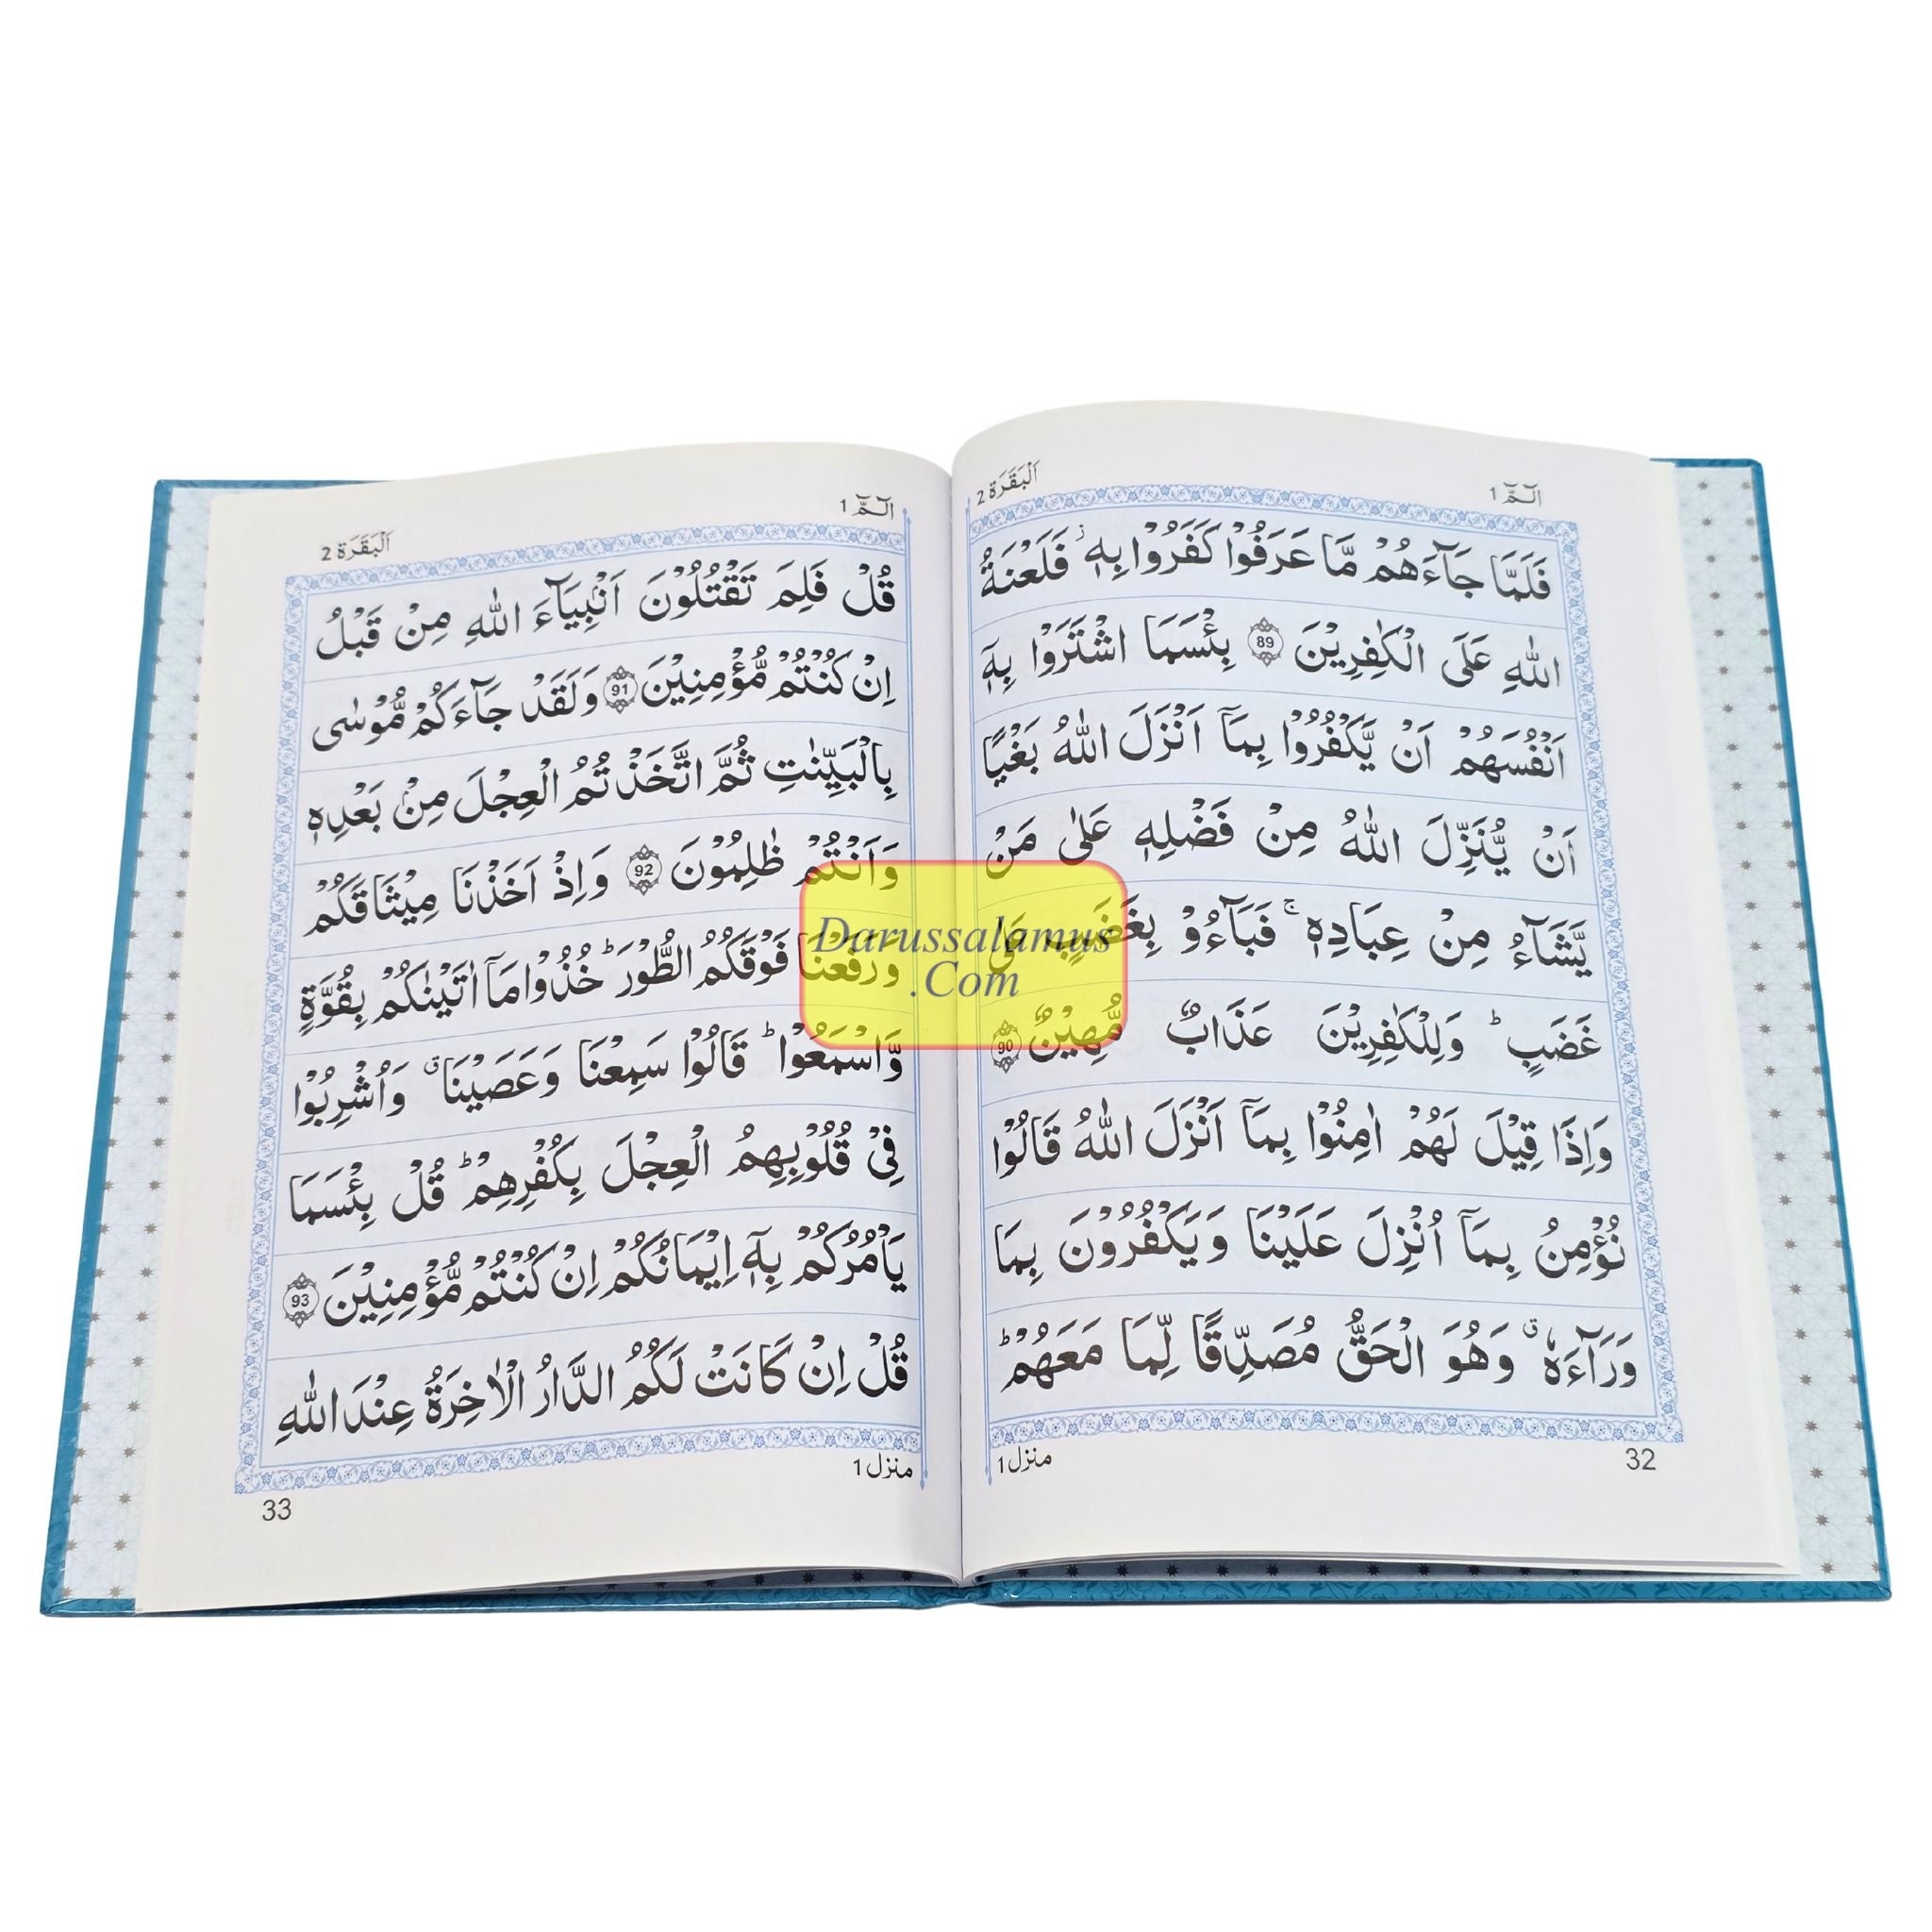 الٓمّٓ 1
اَلْبَقَرَة 2
فَلَمَّا جَآءَهُمْ مَّا عَرَفُوْا كَفَرُوْا بِهٖ ؗ فَلَعْنَةُ
اللّٰهِ عَلَى الْكٰفِرِيْنَ 89 بِئْسَمَا اشْتَرَوْا بِهٖٓ
اَنْفُسَهُمْ اَنْ يَّكْفُرُوْا بِمَآ اَنْزَلَ اللّٰهُ بَغْيًا
اَنْ يُّنَزِّلَ اللّٰهُ مِنْ فَضْلِهٖ عَلٰى مَنْ
يَّشَآءُ مِنْ عِبَادِهٖ ۚ فَبَآءُوْ بِغَضَبٍ
غَضَبٍ ؕ وَلِلْكٰفِرِيْنَ عَذَابٌ مُّهِيْنٌ 90
وَاِذَا قِيْلَ لَهُمْ اٰمِنُوْا بِمَآ اَنْزَلَ اللّٰهُ قَالُوْا
نُؤْمِنُ بِمَآ اُنْزِلَ عَلَيْنَا وَيَكْفُرُوْنَ بِمَا
وَرَآءَهٗ ۗ وَهُوَ الْحَقُّ مُصَدِّقًا لِّمَا مَعَهُمْ ؕ
منزل 1
32
الٓمّٓ 1
اَلْبَقَرَة 2
قُلْ فَلِمَ تَقْتُلُوْنَ اَنْۢبِيَآءَ اللّٰهِ مِنْ قَبْلُ
اِنْ كُنْتُمْ مُّؤْمِنِيْنَ 91 وَلَقَدْ جَآءَكُمْ مُّوْسٰى
بِالْبَيِّنٰتِ ثُمَّ اتَّخَذْتُمُ الْعِجْلَ مِنْۢ بَعْدِهٖ
وَاَنْتُمْ ظٰلِمُوْنَ 92 وَاِذْ اَخَذْنَا مِيْثَاقَكُمْ
وَرَفَعْنَا فَوْقَكُمُ الطُّوْرَ ؕ خُذُوْا مَآ اٰتَيْنٰكُمْ بِقُوَّةٍ
وَّاسْمَعُوْا ؕ قَالُوْا سَمِعْنَا وَعَصَيْنَا ۗ وَاُشْرِبُوْا
فِيْ قُلُوْبِهِمُ الْعِجْلَ بِكُفْرِهِمْ ؕ قُلْ بِئْسَمَا
يَاْمُرُكُمْ بِهٖٓ اِيْمَانُكُمْ اِنْ كُنْتُمْ مُّؤْمِنِيْنَ 93
قُلْ اِنْ كَانَتْ لَكُمُ الدَّارُ الْاٰخِرَةُ عِنْدَ اللّٰهِ
منزل 1
33
Darussalamus
.Com